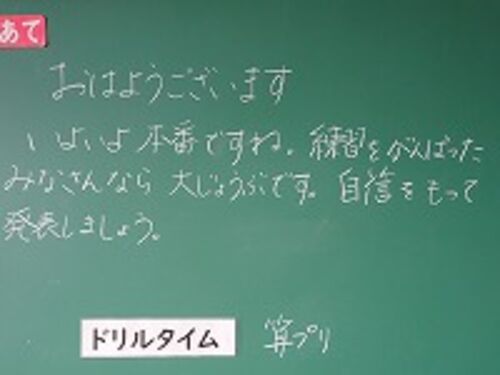 あて
おはようございます
いよいよ本番ですね。練習をがんばった
みなさんなら大じょうぶです。自信をもって
発表しましょう。
ドリルタイム 算プリ